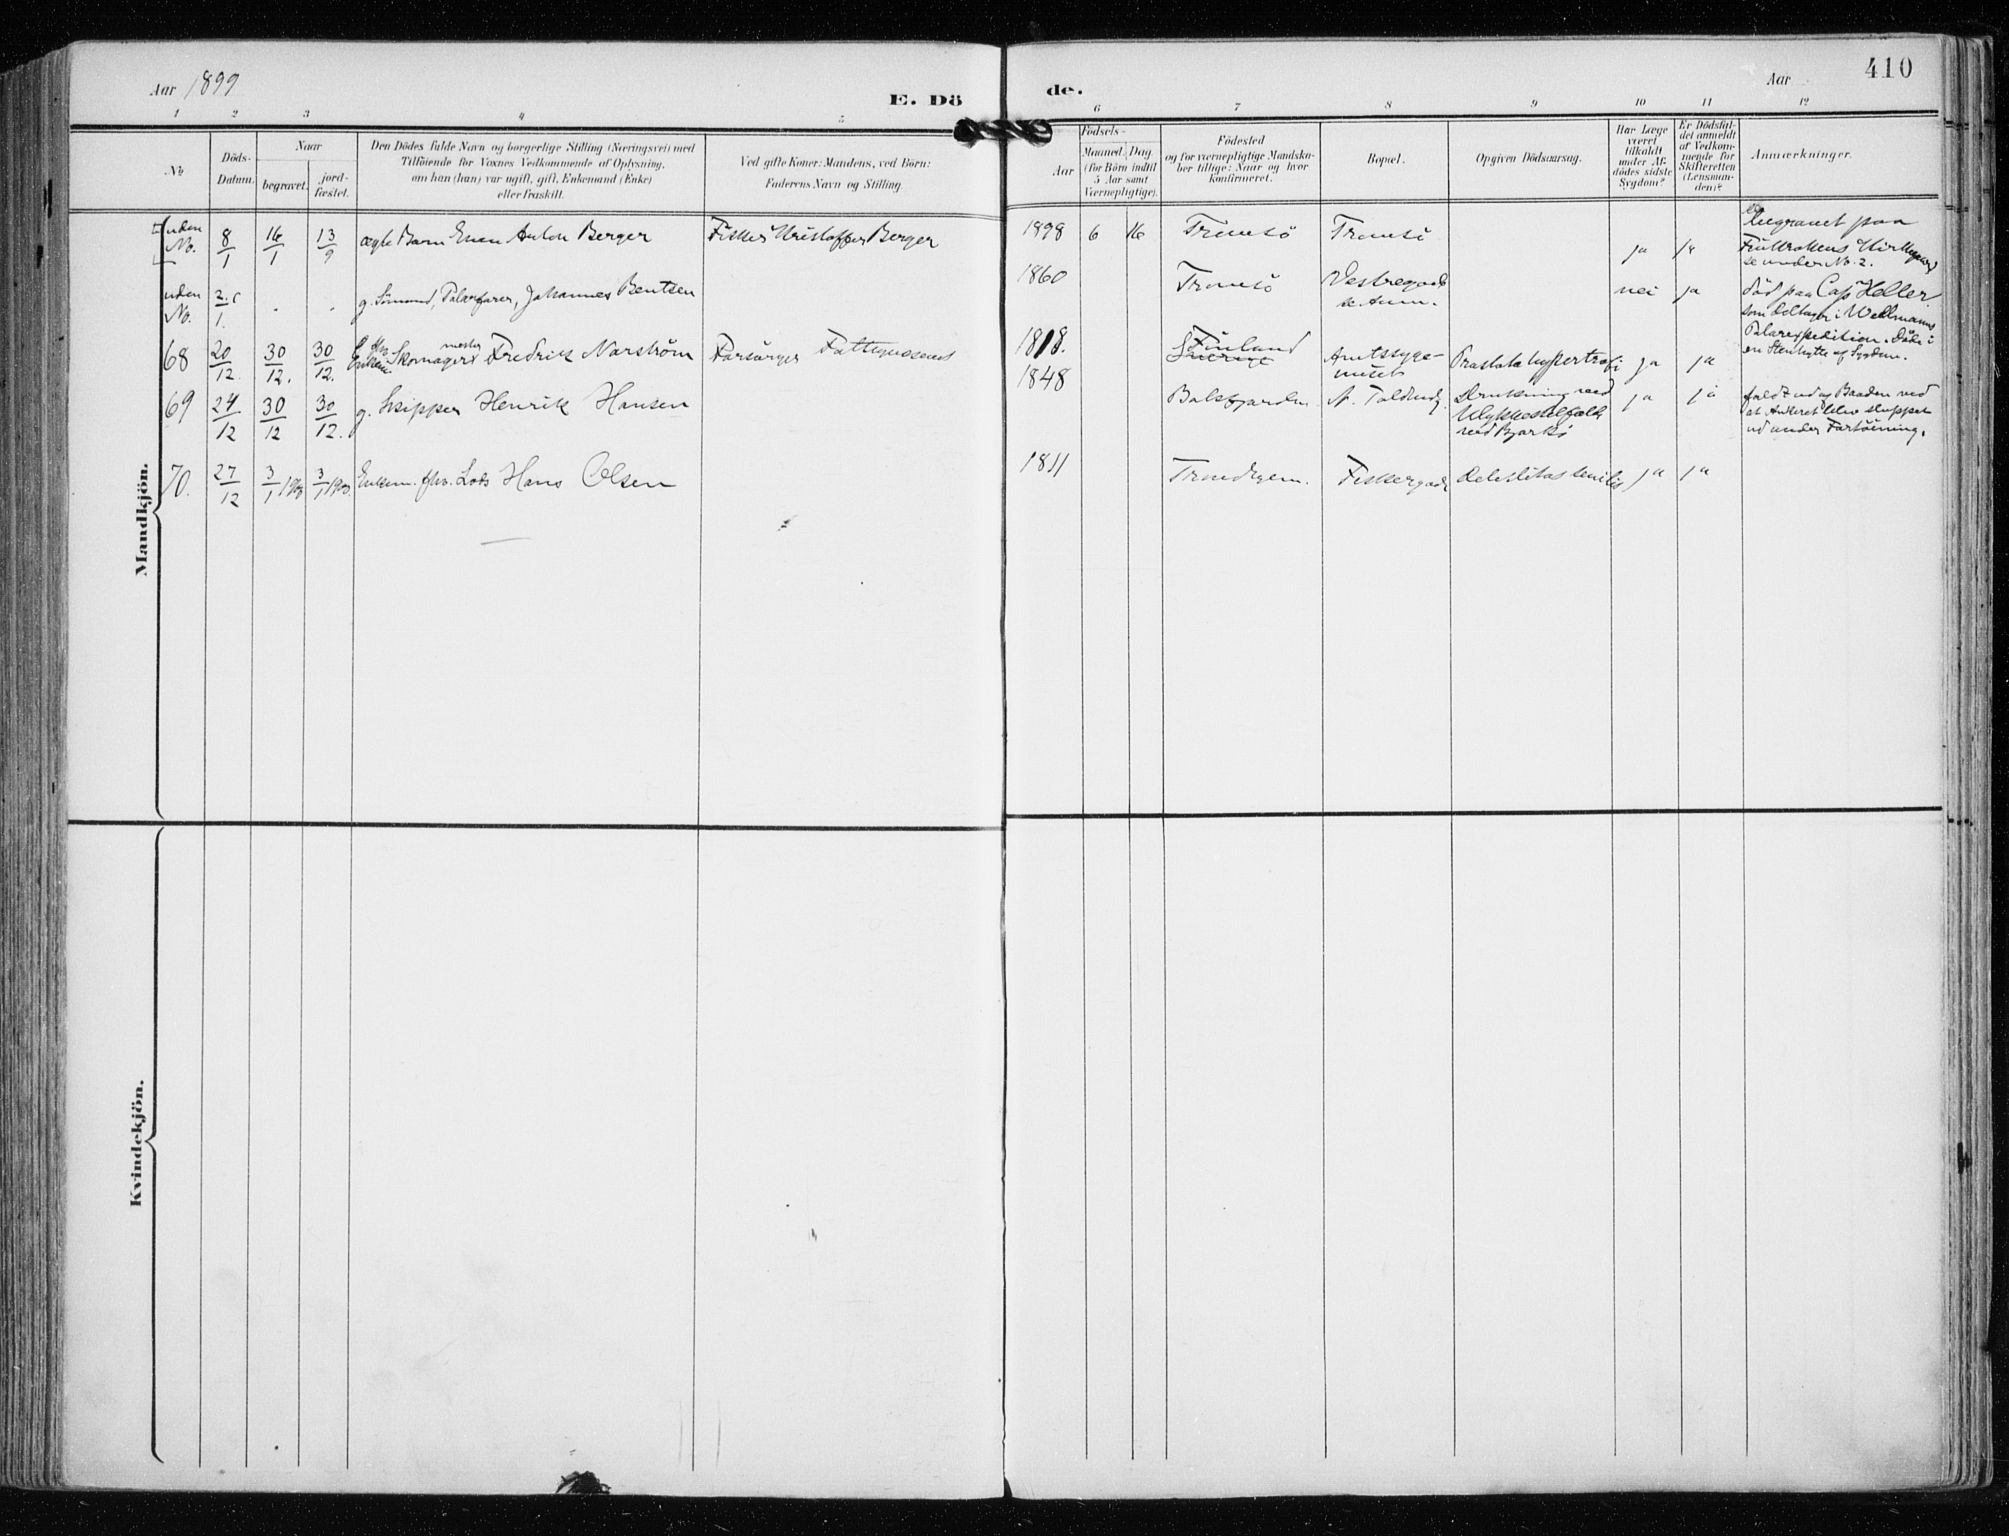 Aar 1899
E. Dö
de.
Aar
410
1 2 3 4 5 6 7 8 9 10 11 12
No
Döds-
Datum.
Naar
begravet.
jord-
fæstet.
Den Dödes fulde Navn og borgerlige Stilling (Næringsvei) med
Tilföiende for Voxnes Vedkommende af Oplysning,
om han (hun) var ugift, gift, Enkemand (Enke)
eller fraskilt.
Ved gifte Koner: Mandens, ved Börn:
Faderens Navn og Stilling
Födsels-
Aar
Maaned. Dag
(for Börn indtil
5 Aar samt
Værnepligtige).
Födested
og for værnepligtige Mandska-
ber tillige: Naar og hvor
konfirmeret.
Bopæl.
Opgiven Dödsaarsag.
Har Læge
været
tilkaldt
under Af-
dödes sidste
Sygdom?
Er Dödsfal-
det anmeldt
af Vedkom-
mende for
Skifteretten
(Lensman-
den)?
Anmærkninger.
Mandkjön.
uden No. 8/1 16/1 13/9 ægte Barn Enen Anton Berger Fisker Kristoffer Berger 1898 6 16 Tromsö Tromsö ja ja
begravet paa
Kirkegaard
se under No. 2.
uden No. 2/1 g. Sömand, Johannes Bentsen 1860 Tromsö Vestregade
se Anm. nei ja
död paa Cap Heller
som deltager i Wellmanns
Polarexpedition. Döde i
en Stenhytte af Sygdom.
68 20/12 30/12. 30/12. Enkem. fhv. Skomagermester Fredrik Narström Forsörges Fattigvæsenet 1818. Finland
Sverige
Amtssyge-
huset Prostatahypertrofi ja ja
69 24/12 30/12 30/12. g. Skipper Henrik Hansen 1848 Balsfjorden N. Toldbodg. Drukning ved
Ulykkestilfælde
ved Bjarkö ja ja
faldt ud af Baaden ved
at Ankeret blev sluppet
ud under Fortöining.
70. 27/12 3/1 1900 3/1 1900 Enkem. fhv. Lods Hans Olsen 1811 Trondhjem. Fiskergade Debilitas senilis ja ja
Kvindekjön.